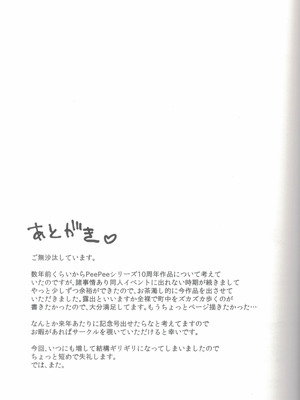 あとがき♡
ご無沙汰しています。
数年前くらいからPeePeeシリーズ10周年作品について考えて
いたのですが、諸事情あり同人イベントに出れない時期が続きまして
やっと少しずつ余裕ができたので、お茶濁し的に今作品を出させて
いただきました。露出といいますか全裸で町中をズカズカ歩くのが
書きたかったので、大分満足してます。もうちょっとページ描きたかった…
なんとか来年あたりに記念号出せたらなと考えてますので
お暇があればサークルを覗いていただけると幸いです。
今回、いつにも増して結構ギリギリになってしまいましたので
ちょっと短めで失礼します。
では、また。